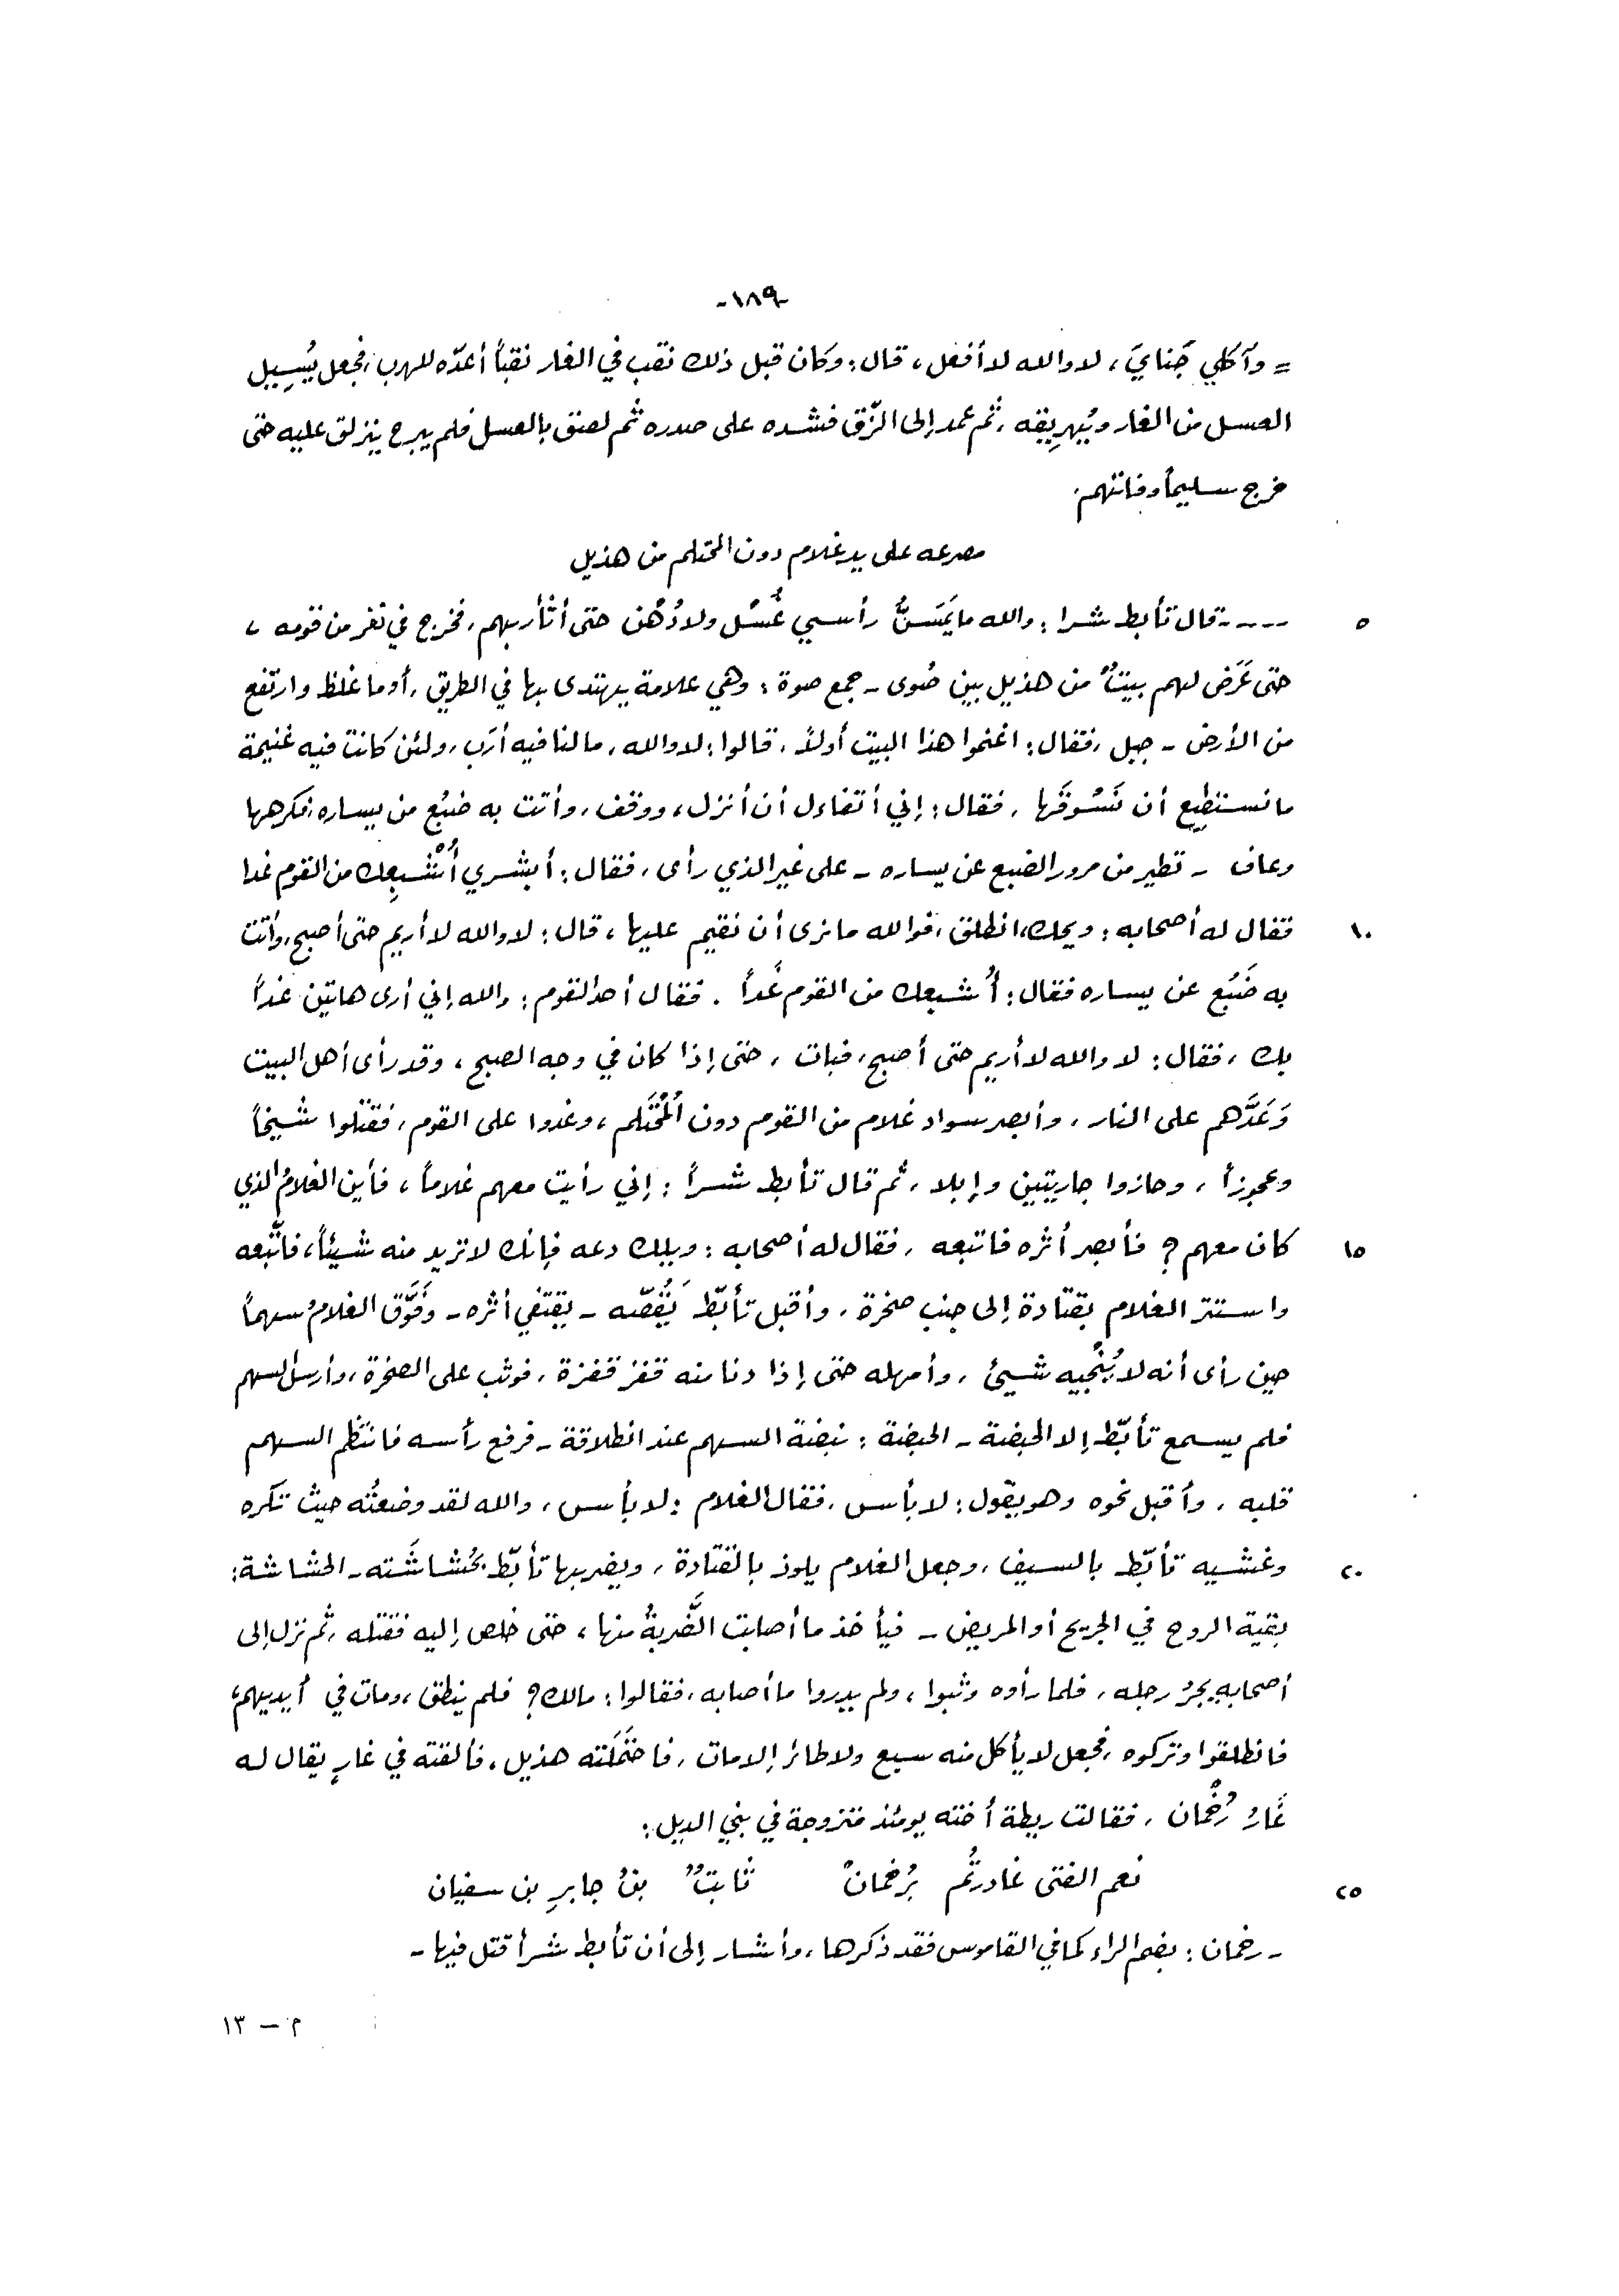 -١٨٩-
= وآكلي جَنايَ، لا والله لا أفعل، قال: وكان قبل ذلك نقب في الغار نقباً أعدّه للهرب، فجعل يُسِيل
العسل من الغار ويُهرِيقه، ثم عمد إلى الزّق فشده على صدره ثم لصق بالعسل فلم يبرح ينزلق عليه حتى
خرج سليماً وفاتهم.
مصرعه على يد غلام دون المحتلم من هذيل
٥ ---- قال تأبط شرا: والله ما يَمَسَنُّ رأسي غُسْل ولا دُهْن حتى أثأر بهم، فخرج في نفر من قومه،
حتى عَرَض لهم بيتٌ من هذيل بين صُوى - جمع صوة: وهي علامة يهتدى بها في الطريق، أو ما غلظ وارتفع
من الأرض - جبل، فقال: اغنموا هذا البيت أولاً، قالوا: لا والله، ما لنا فيه أرَب، ولئن كانت فيه غنيمة
ما نستطيع أن نَسُوقَها، فقال: إني أتفاءل أن أنزل، ووقف، وأتت به ضَبُع من يساره، فكرهها
وعاف - تطير من مرور الضبع عن يساره - على غير الذي رأى، فقال: أبشري أُشْبِعِك من القوم غدا
١٠ فقال له أصحابه: ويحك، انطلق، فوالله ما نرى أن نقيم عليها، قال: لا والله لا أريم حتى أصبح، وأتت
به ضَبُع عن يساره فقال: أُشبعك من القوم غَداً. فقال أحد القوم: والله إني أرى هاتين غداً
بك، فقال: لا والله لا أريم حتى أصبح، فبات، حتى إذا كان في وجه الصبح، وقد رأى أهل البيت
وَعَدَّهم على النار، وأبصر سواد غلام من القوم دون المُحْتَلم، وغدوا على القوم، فقتلوا شيخاً
وعجوزاً، وحازوا جاريتين وإبلا، ثم قال تأبط شراً: إني رأيت معهم غلاماً، فأين الغلامُ الذي
١٥ كان معهم؟ فأبصر أثره فاتبعه، فقال له أصحابه: ويلك دعه فإنك لا تريد منه شيئاً، فاتَّبعه
واستتر الغلام بقتادة إلى جنب صخرة، وأقبل تأبّط يَقُصّه - يقتفي أثره - وفَوَّق الغلامُ سهماً
حين رأى أنه لا يُنْجيه شيئ، وأمهله حتى إذا دنا منه قفز قفزة، فوثب على الصخرة، وأرسل السهم
فلم يسمع تأبّط إلا الحبضة - الحبضة: نبضة السهم عند انطلاقة - فرفع رأسه فانتظم السهم
قلبه، وأقبل نحوه وهو يقول: لا بأس، فقال الغلام: لا بأس، والله لقد وضعتُه حيث تكره
٢٠ وغشيه تأبّط بالسيف، وجعل الغلام يلوذ بالقتادة، ويضربها تأبّط بحُشاشَته - الحشاشة:
بقية الروح في الجريح أو المريض - فيأخذ ما أصابت الضَّربةُ منها، حتى خلص إليه فقتله، ثم نزل إلى
أصحابه يجرُ رجله، فلما رأوه وثبوا، ولم يدروا ما أصابه، فقالوا: مالك؟ فلم ينطق، ومات في أيديهم،
فانطلقوا وتركوه، فجعل لا يأكل منه سبع ولا طائر إلا مات، فاحتَمَلَته هذيل، فألقته في غارٍ يقال له
غَارُ رُخْمان، فقالت ريطة أخته يومئذ متزوجة في بني الديل:
٢٥ نعم الفتى غادرتُم برُخمانْ ثابتٌ بنُ جابرِ بن سفيان
- رخمان: بضم الراء كما في القاموس فقد ذكرها، وأشار إلى أن تأبط شراً قتل فيها -
م - ١٣